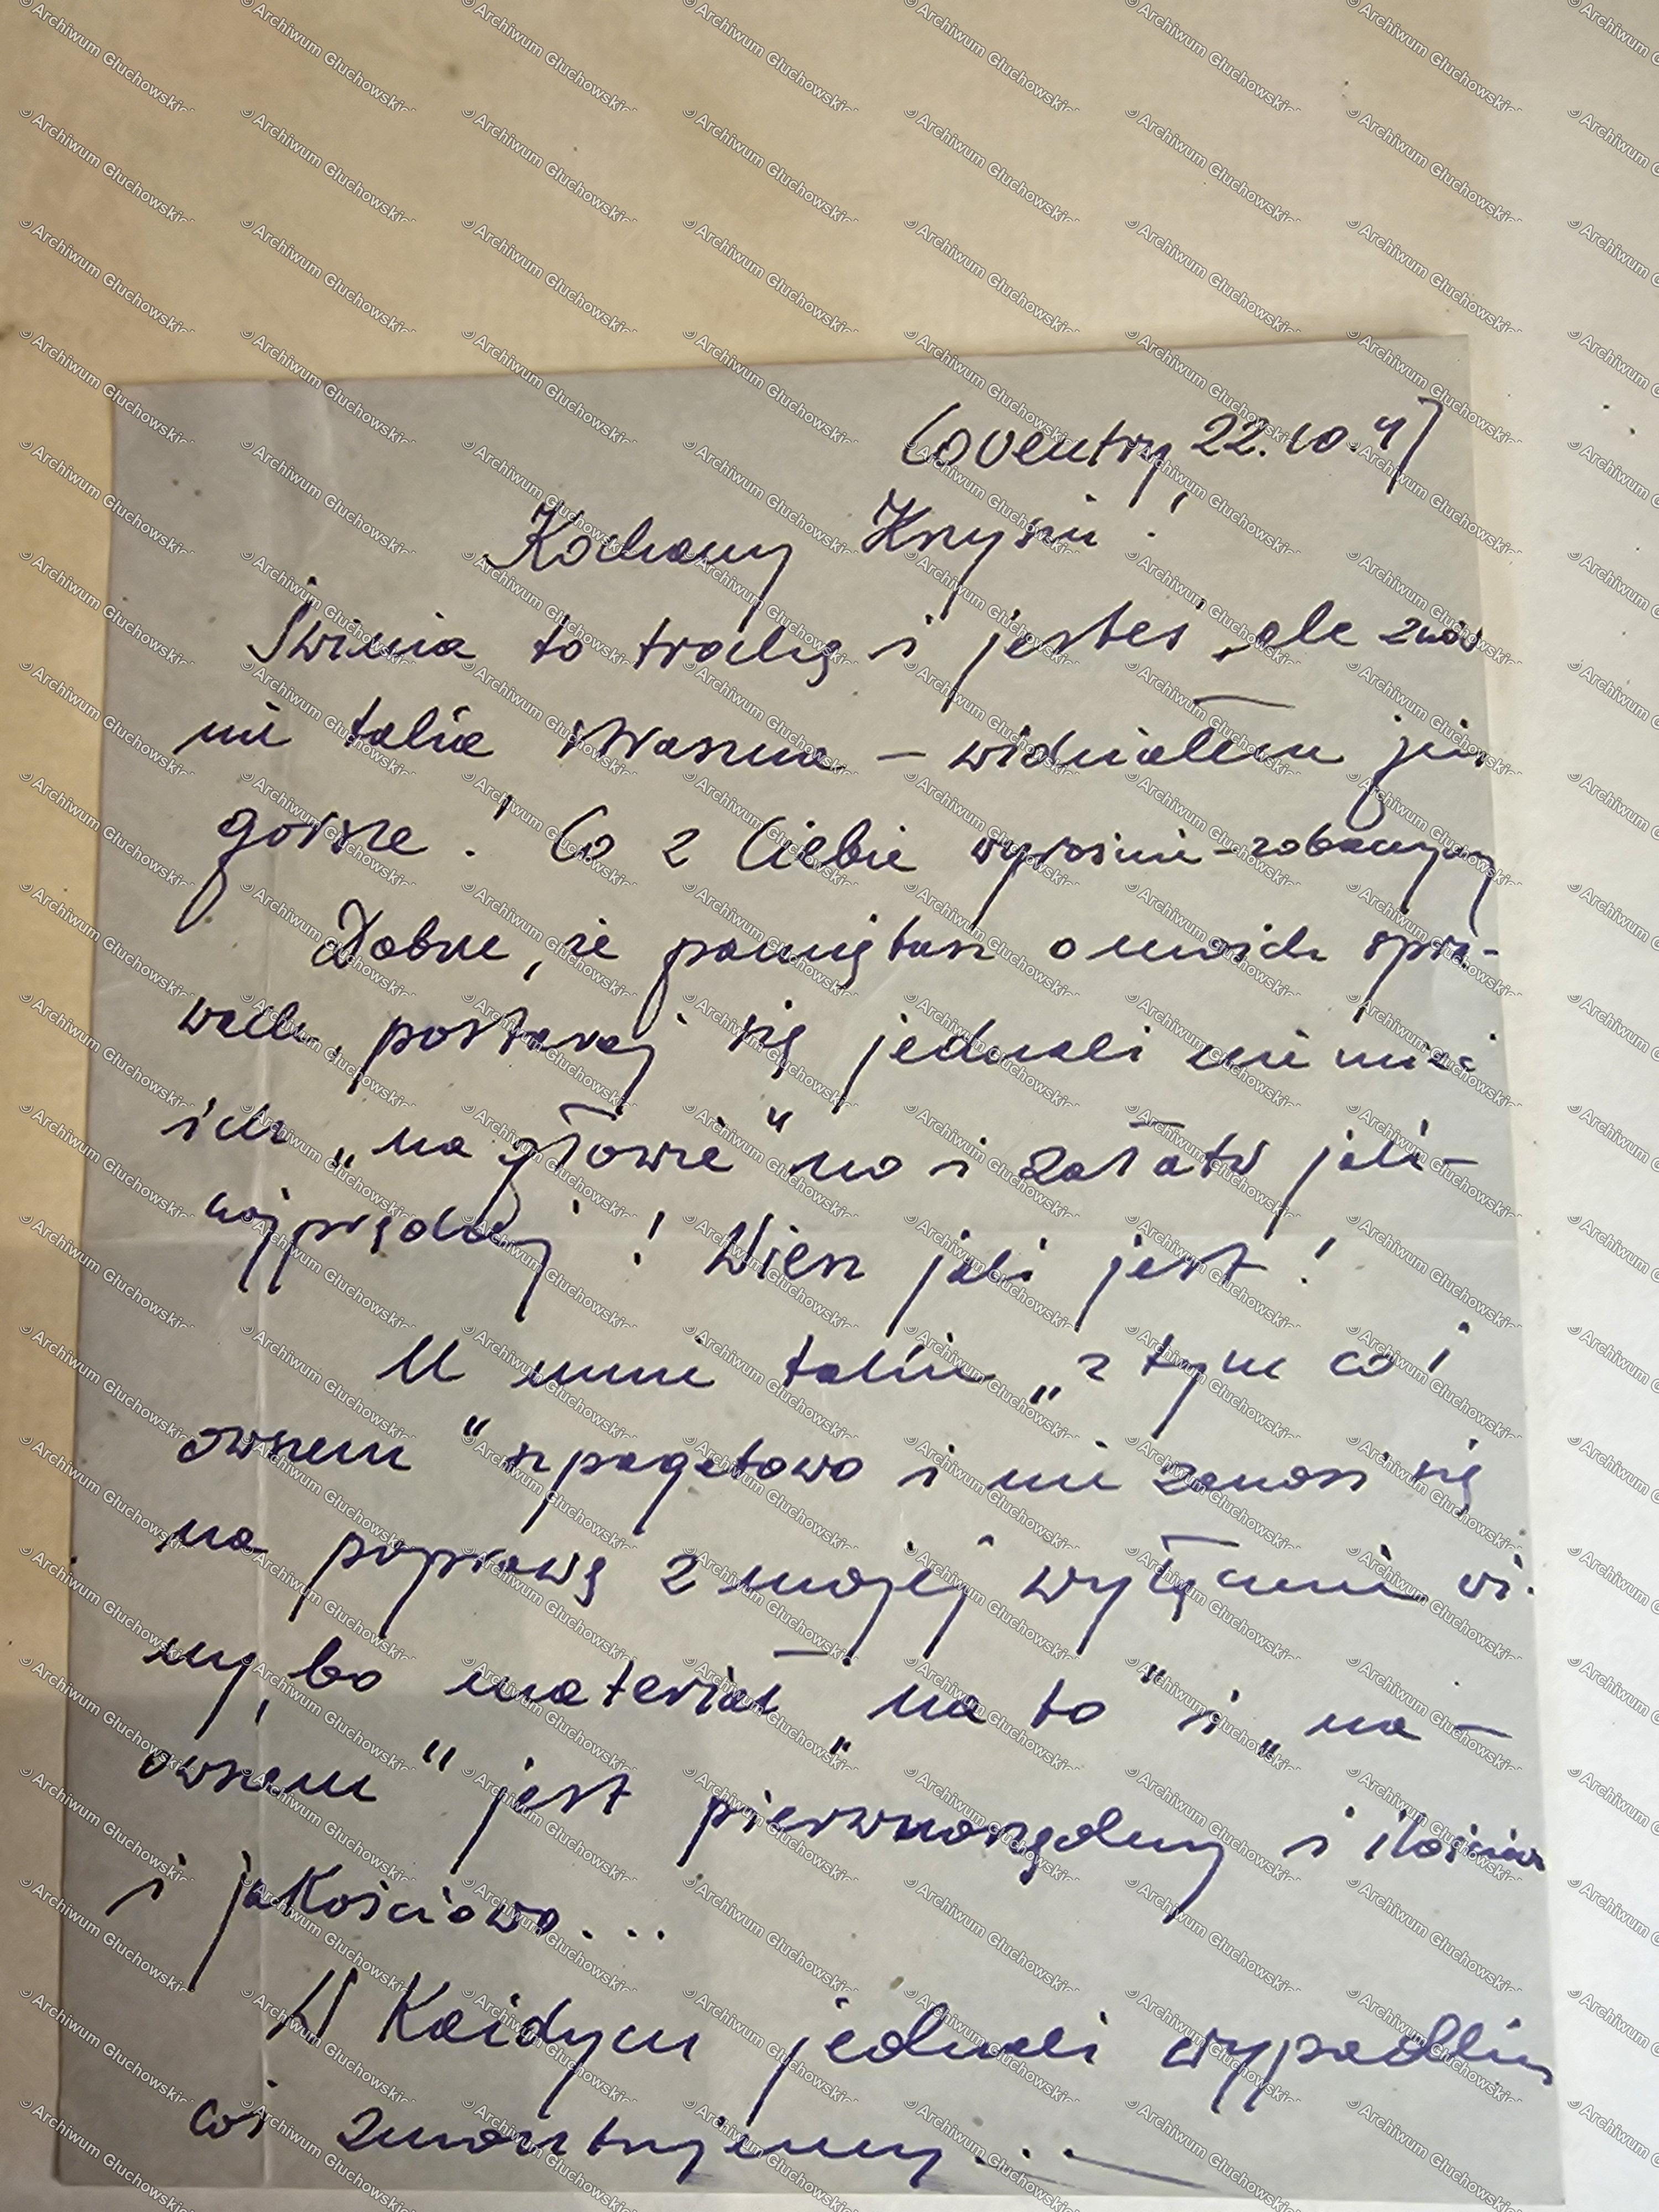 Coventry, 22.10.47
Kochany Krzysiu!
Świnia to trochę i jesteś, ale znów
nie takie straszna – widziałem już
gorsze! Co z Ciebie wyrośnie – zobaczymy
Dobrze, że pamiętasz o moich spra-
wach, postaraj się jednak nie mieć
ich „na głowie" no i załatw jak-
najprędzej! Wiesz jak jest!
U mnie takie „z tym co i
owszem" szpagetowo i nie zanosi się
na poprawę z mojej wyłącznie wi-
ny, bo materiał „na to" i „na-
owszem" jest pierwszorzędny i ilościowo
i jakościowo...
W każdym jednak wypadku
coś zmontujemy...
© Archiwum Głuchowskich